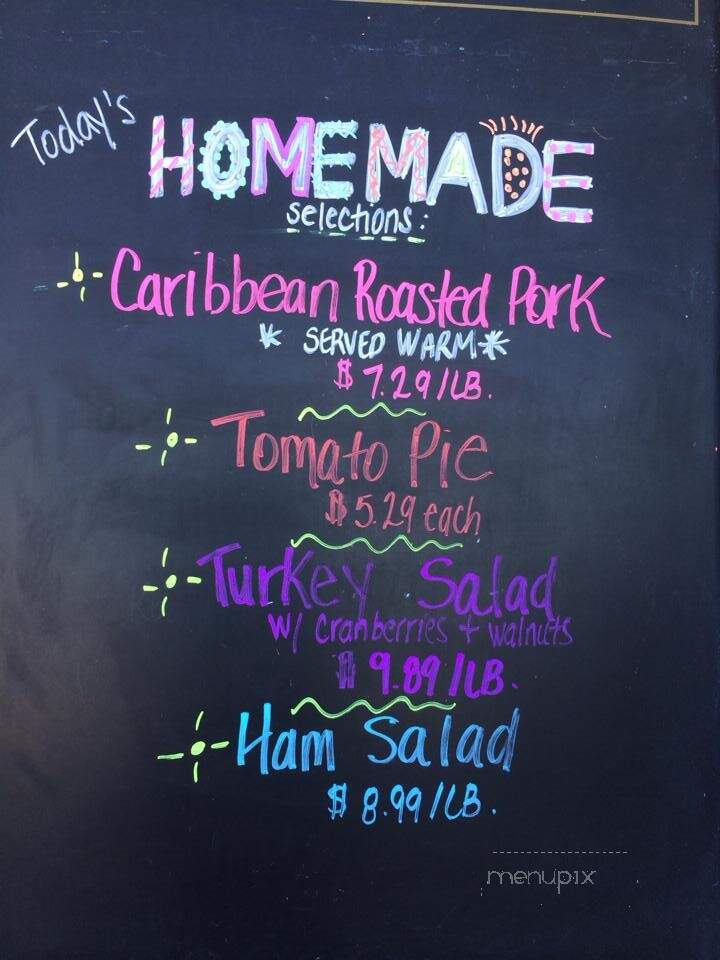 Today's HOMEMADE
selections:
Caribbean Roasted Pork
* SERVED WARM *
$ 7.29/LB.
Tomato Pie
$ 5.29 each
Turkey Salad
w/ cranberries + walnuts
$ 9.89/LB.
Ham Salad
$ 8.99/LB.
menupix